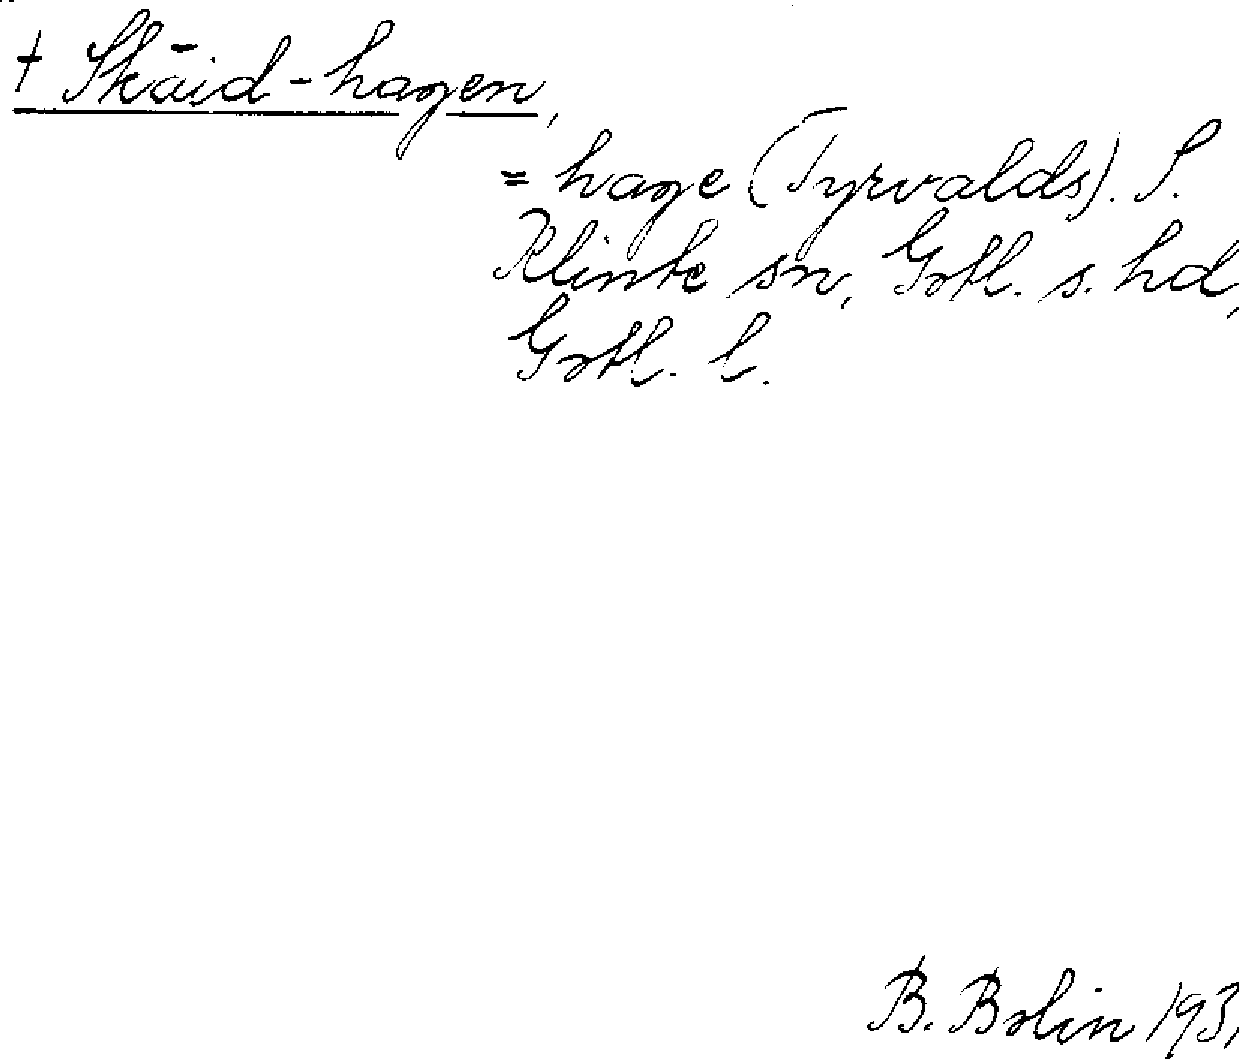 + Skäid-hagen,
= hage (Tyrvalds). S.
Klinte sn, Gotl. s. hd,
Gotl. l.
B. Bolin 193